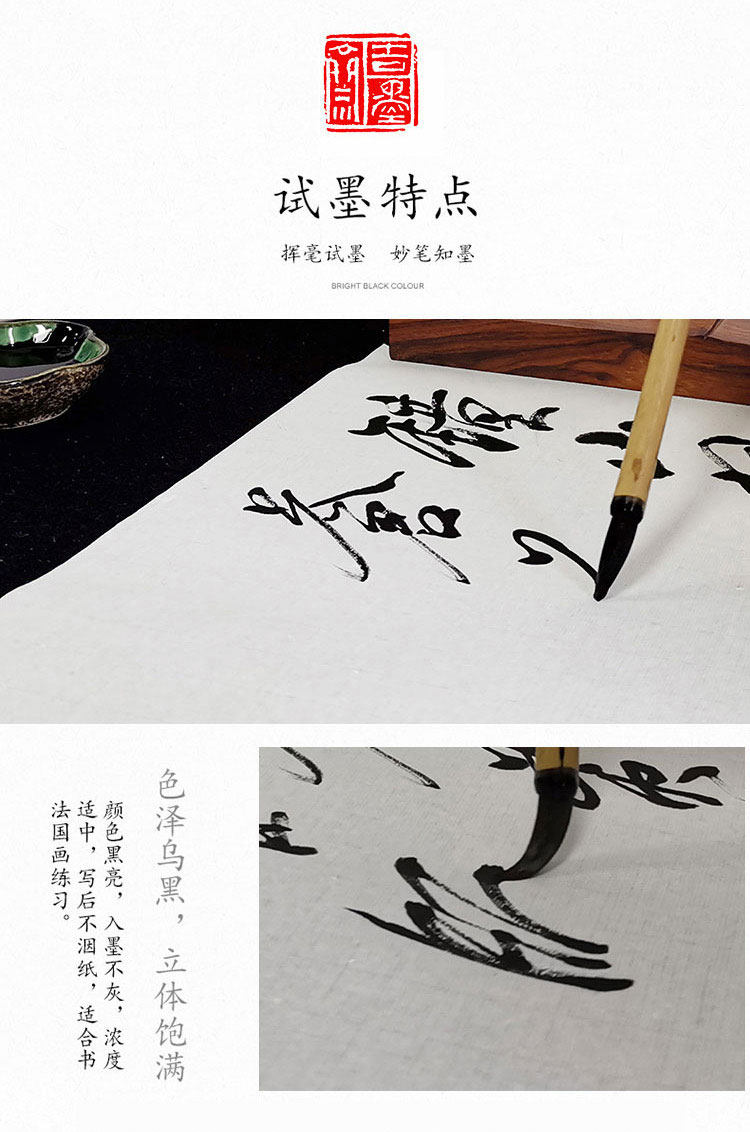 试墨特点
挥毫试墨 妙笔知墨
BRIGHT BLACK COLOUR
色泽乌黑，立体饱满
颜色黑亮，入墨不灰，浓度
适中，写后不洇纸，适合书
法国画练习。